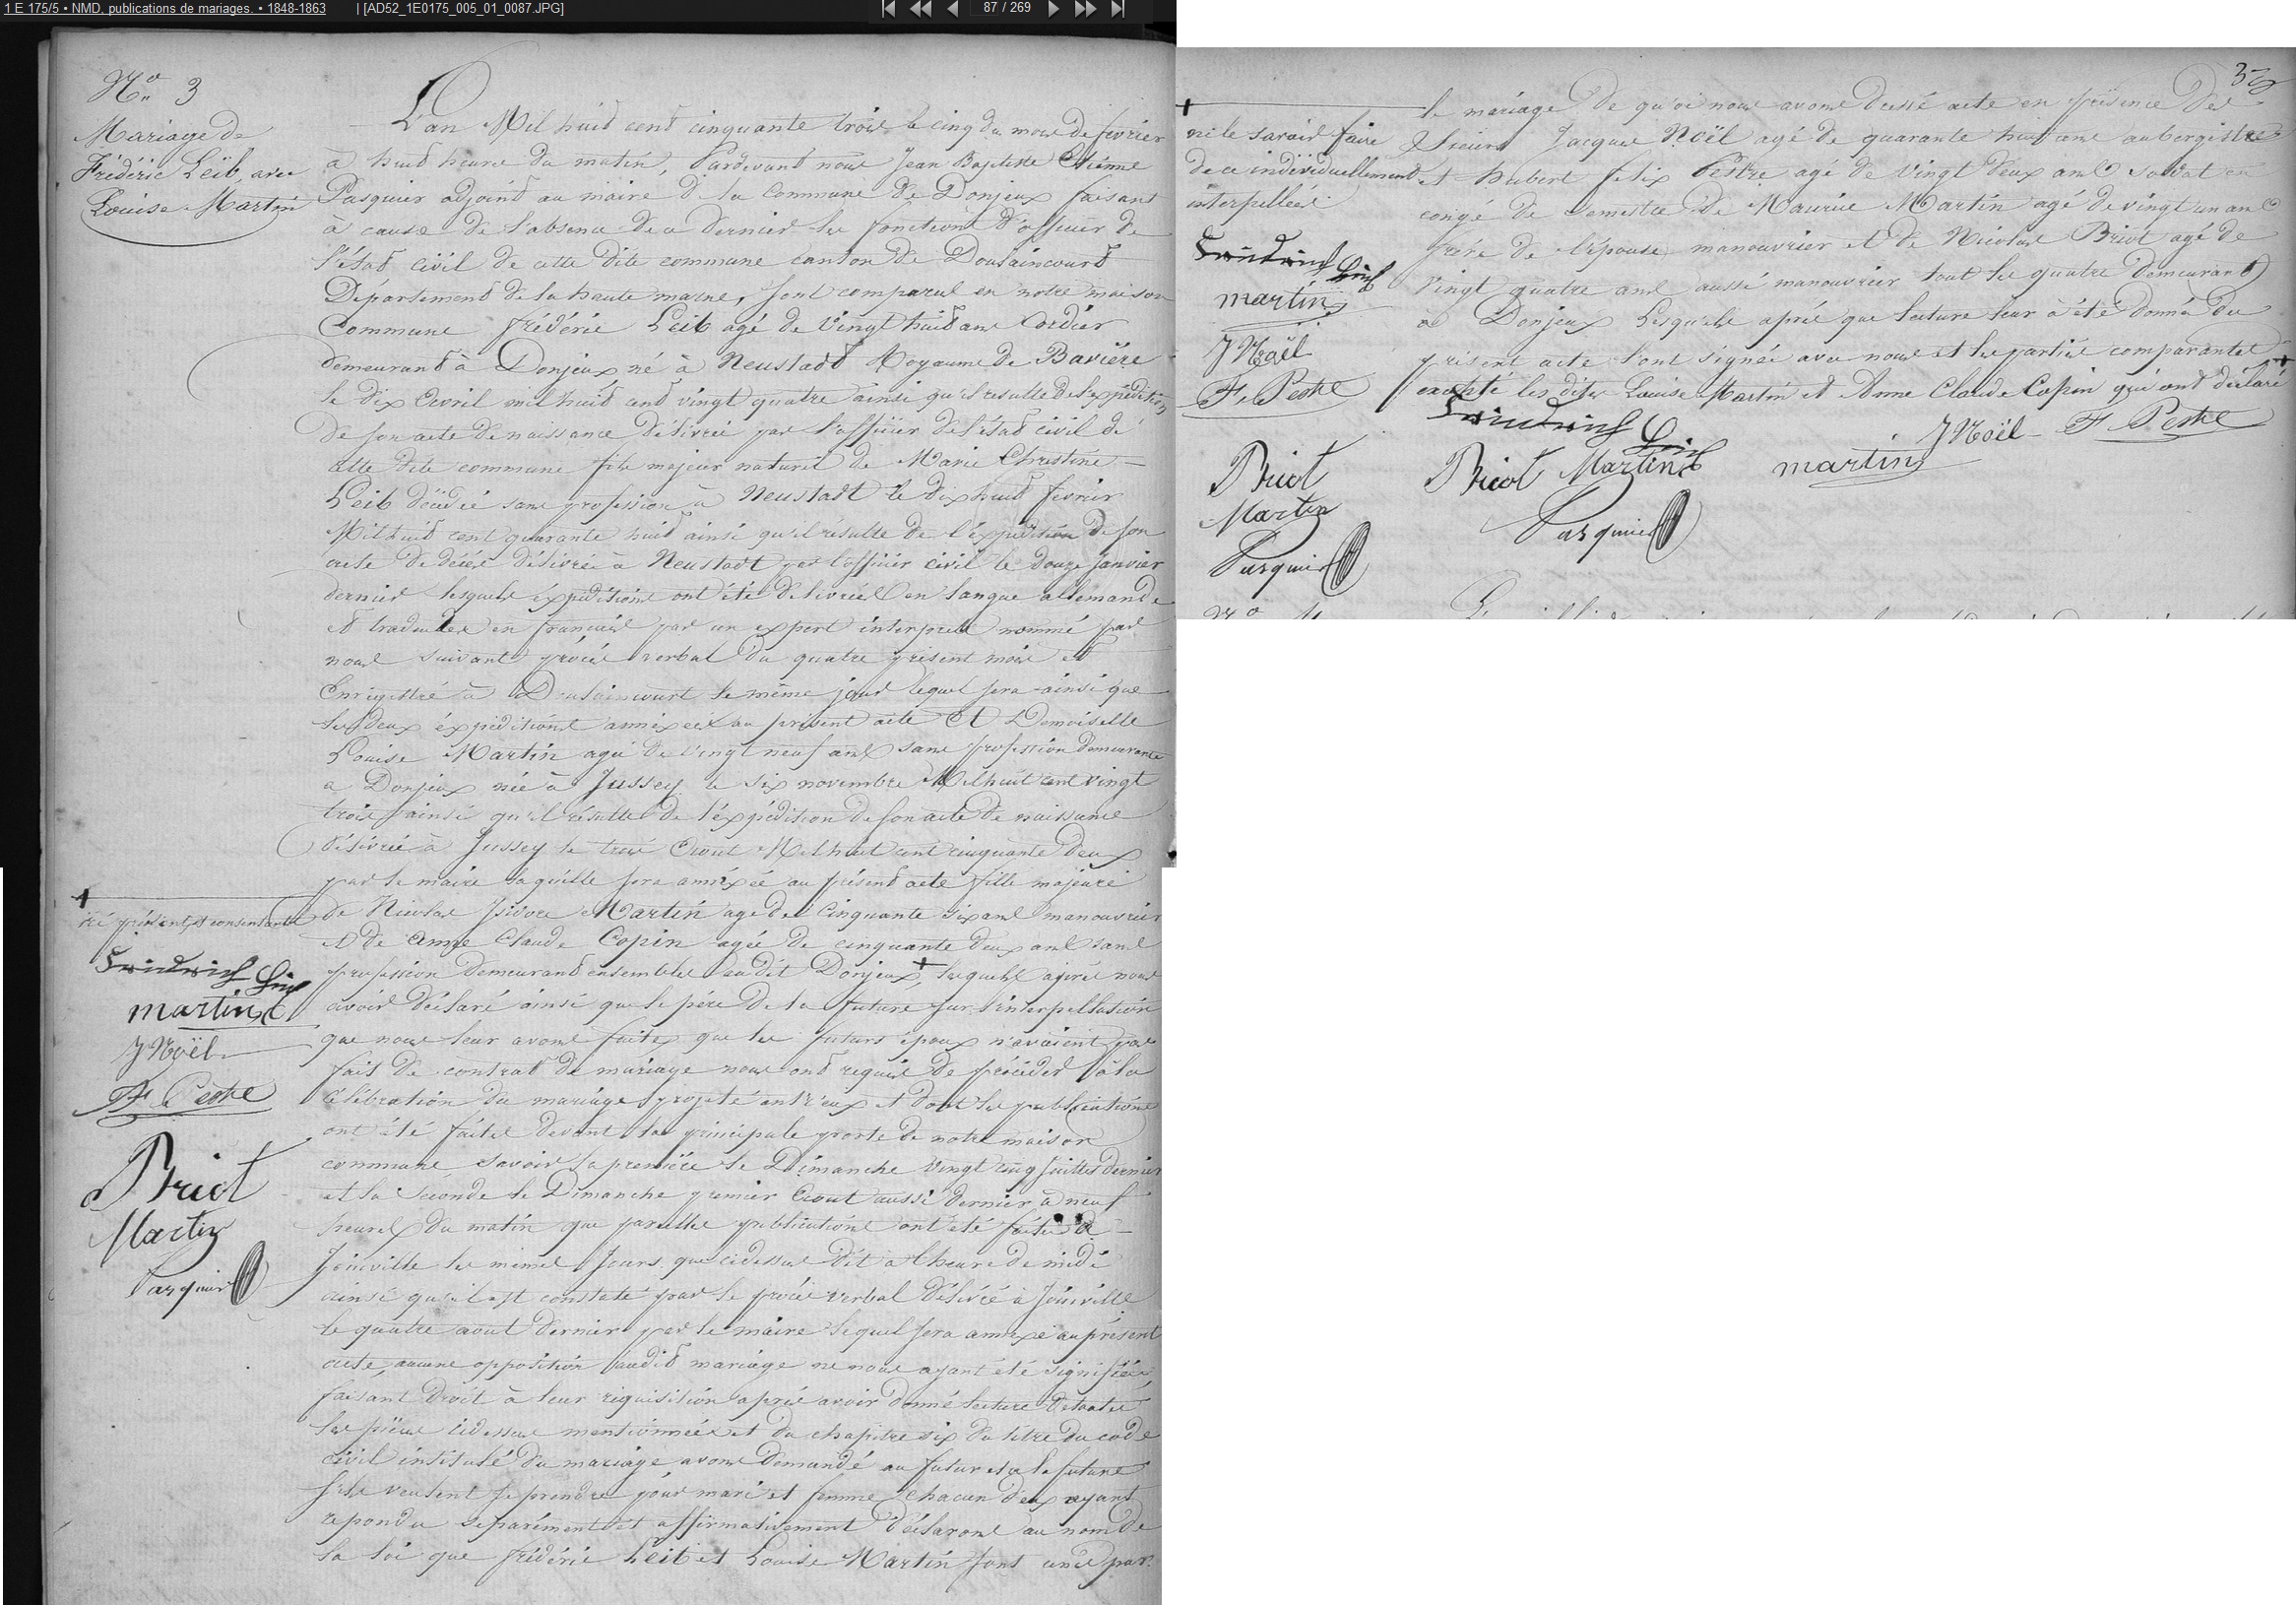 1 E 175/5 • NMD, publications de mariages. • 1848-1863 | [AD52_1E0175_005_01_0087.JPG] 87 / 269
No. 3
Mariage de
Frédéric Leib, avec
Louise Martin
L'an Mil huit cent cinquante trois le cinq du mois de fevrier
à huit heures du matin, Pardevant nous Jean Baptiste Etienne
Pasquier adjoint au maire de la Commune de Donjeux faisant
à cause de l'absence de ce dernier les fonctions d'officier de
l'état civil de cette dite commune canton de Doulaincourt
Département de la haute marne, sont comparus en notre maison
Commune frédéric Leib agé de vingt huit ans Cordier
demeurant à Donjeux né à Neustadt Royaume de Bavière
le dix Avril mil huit cent vingt quatre ainsi qu'il resulte de l'expédition
de son acte de naissance délivrée par l'officier de l'état civil de
cette dite commune fils majeur naturel de Marie Christine
Leib décédée sans profession à Neustadt le dix huit fevrier
Mil huit cent quarante huit ainsi qu'il résulte de l'expédition de son
acte de décès délivrée à Neustadt par l'officier civil le douze Janvier
dernier lesquels expéditions ont été délivrées en langue allemande
et traduites en francais par un expert interprete nommé par
nous suivant procès verbal du quatre présent mois et
Enregistré à Doulaincourt le même jour lequel sera ainsi que
les deux expéditions annexées au présent acte Et Demoiselle
Louise Martin agée de vingt neuf ans sans profession demeurante
a Donjeux née à Jussey le six novembre Mil huit cent vingt
trois ainsi qu'il résulte de l'expédition de son acte de naissance
délivrée à Jussey le trois Aout Mil huit cent cinquante deux
par le maire laquelle sera annéxée au présent acte fille majeure
de Nicolas Isidore Martin agé de Cinquante six ans manouvrier
et de Anne Claude Copin agée de cinquante deux ans sans
profession demeurant ensembles audit Donjeux+, lesquels après nous
avoir déclaré ainsi que le père de la future sur l'interpellation
que nous leur avons faite, que les futurs époux n'avaient pas
fait de contrat de mariage nous ont requis de procéder à la
célébration du mariage projeté entr'eux et dont les publications
ont été faites devant la principale porte de notre maison
commune savoir la première le Dimanche vingt cinq juillet dernier
et la seconde le Dimanche premier Aout aussi dernier à neuf
heures du matin que pareilles publications ont été faites à
Joinville les mêmes Jours que cidessus dit à l'heure de midi
ainsi qu'il est constaté par le procès verbal délivré à Joinville
le quatre aout dernier par le maire lequel sera annexé au présent
acte, aucune opposition audit mariage ne nous ayant été signifiée,
faisant droit à leur réquisition après avoir donné lecture de toutes
les pièces cidessus mentionnées et du chapitre six du titre du code
civil intitulé du mariage avons demandé au futur et à la future
s'ils veulent se prendre pour mari et femme chacun d'eux ayant
repondu séparément et affirmativement déclarons au nom de
la loi que frédéric Leib et Louise Martin sont unis par
+
présents et consentants
Friedrich Leib
martin
J Noël
F. Pestre
Briot
Martin
Pasquier
le mariage de quoi nous avons dressé acte en présence des
Sieurs Jacques Noël agé de quarante huit ans aubergiste
et hubert felix Pestre agé de vingt deux ans soldat en
congé de semestre de Maurice Martin agé de vingt un ans
frère de l'épouse manouvrier et de Nicolas Briot agé de
vingt quatre ans aussi manouvrier tout les quatre demeurant
a Donjeux Lesquels après que lecture leur à été donné du
présent acte l'ont signée avec nous et les parties comparantes
excepté les dites Louise Martin et Anne Claude Copin qui ont déclaré +
Friedrich Leib
J Noël F. Pestre
Briot Martin martin
Pasquier
+
ni le savoir faire
de ce individuellement
interpellées.
Friedrich Leib
martin
J Noël
F. Pestre
Briot
Martin
Pasquier